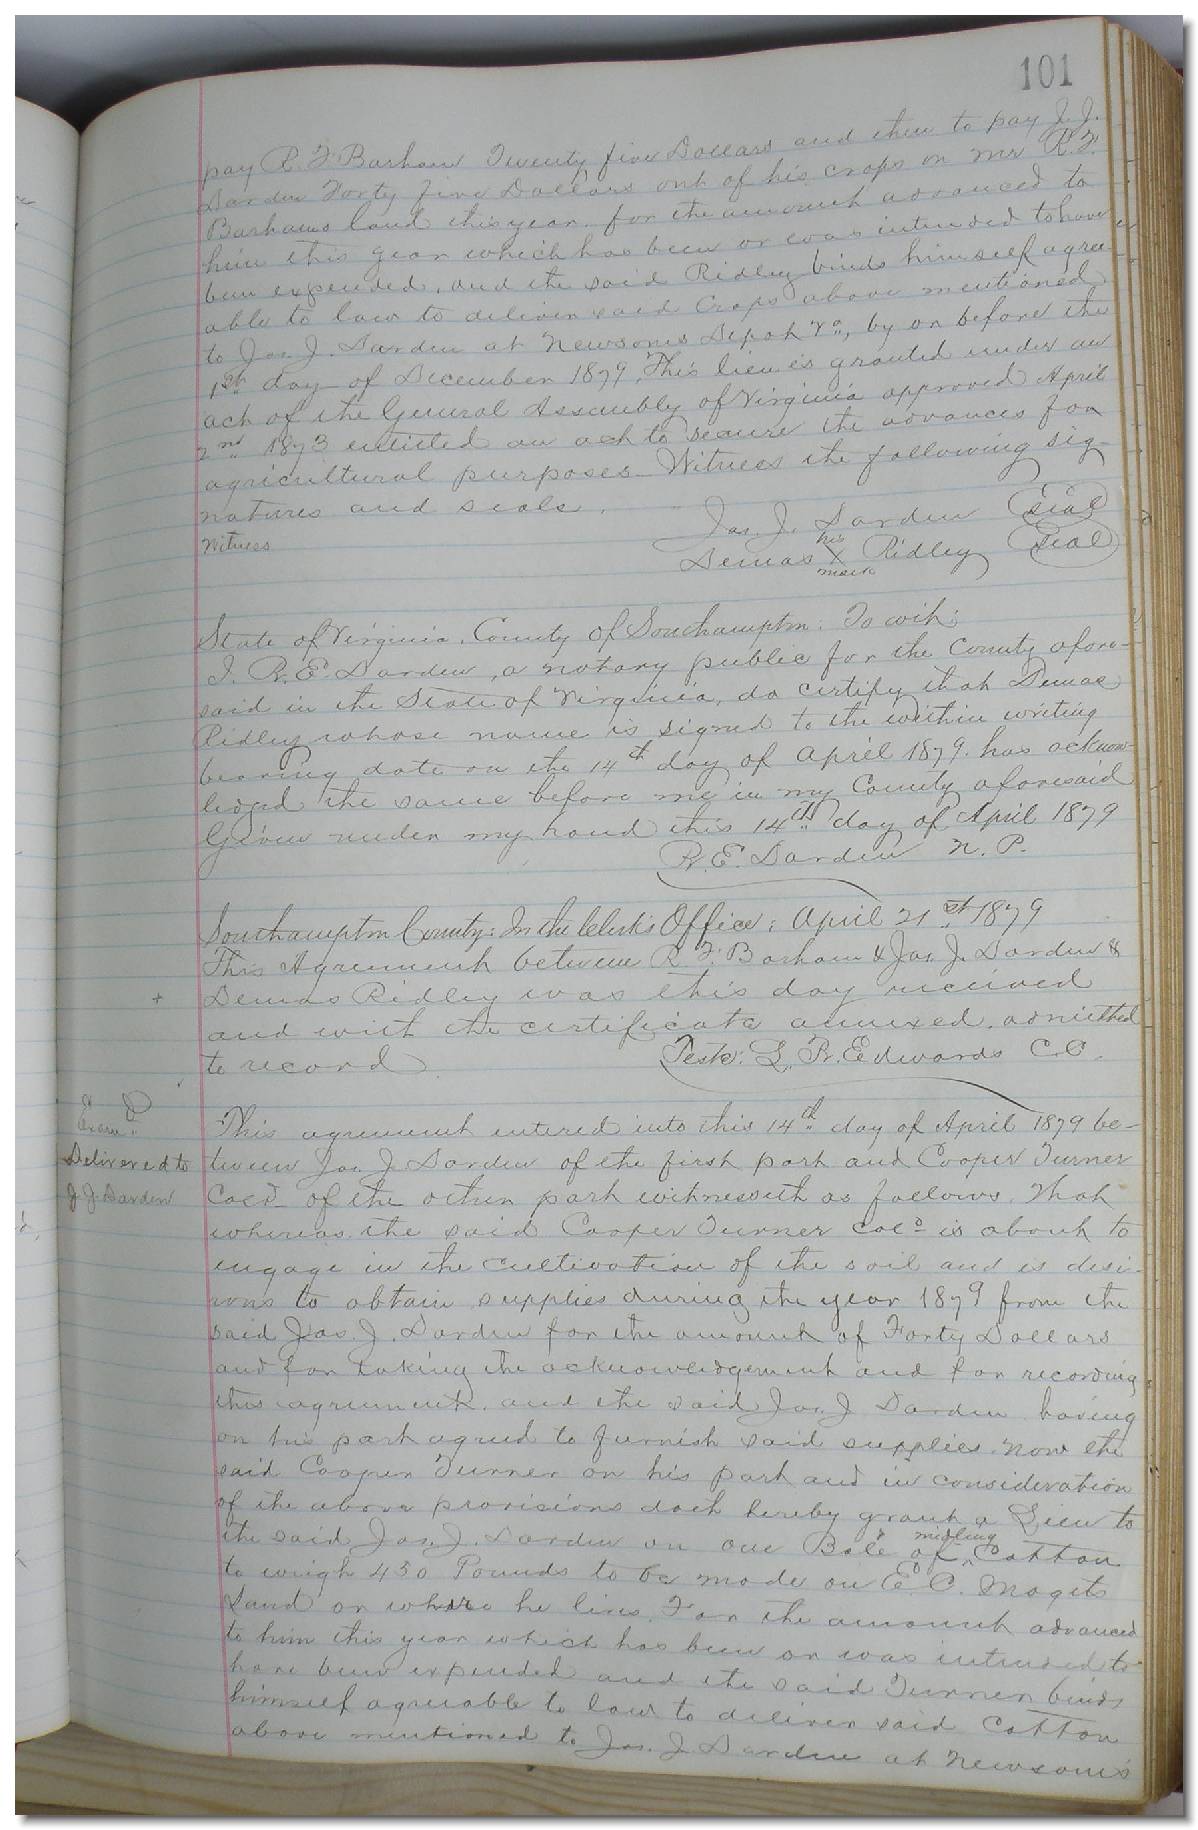 101
pay R. F. Barham Twenty five Dollars and then to pay J. J.
Darden Forty five Dollars out of his crops on Mr R. F.
Barhams land this year. for the amount advanced to
him this year which has been or was intended to have
been expended, and the said Ridley binds himself agree-
able to law to deliver said Crops above mentioned
to Jas. J. Darden at Newsoms Depot Va, by or before the
1st day of December 1879. This lien is granted under an
act of the General Assembly of Virginia approved April
2nd 1873 entitled an act to secure the advances for
agricultural purposes. Witness the following sig-
natures and seals.
Jas. J. Darden Seal
Witness
his
Demas X Ridley Seal
mark
State of Virginia, County of Southampton: To wit:
I. R. E. Darden, a notary public for the County afore-
said in the State of Virginia, do certify that Demas
Ridley whose name is signed to the within writing
bearing date on the 14th day of April 1879. has acknow-
ledged the same before me in my County aforesaid
Given under my hand this 14th day of April 1879
R. E. Darden N. P.
Southampton County: In the Clerk's Office: April 21st 1879
This Agreement between R. F. Barham & Jas. J. Darden &
+ Demas Ridley was this day received
and with the certificate annexed, admitted
to record.
Teste: L. R. Edwards C. C.
Exam d
Delivered to
J. J. Darden
This agreement entered into this 14th day of April 1879 be-
tween Jas. J. Darden of the first part and Cooper Turner
Cold of the other part witnesseth as follows. That
whereas the said Cooper Turner Cold is about to
engage in the cultivation of the soil and is desi-
rous to obtain supplies during the year 1879 from the
said Jas. J. Darden for the amount of Forty Dollars
and for taking the acknowledgement and for recording
this agreement. and the said Jas. J Darden having
on his part agreed to furnish said supplies. Now the
said Cooper Turner on his part and in consideration
of the above provisions doth hereby grant a Lien to
the said Jas. J. Darden on one Bale of ^midling Cotton
to weigh 450 Pounds to be made on E. C. Magets
Land or where he lives. For the amount advanced
to him this year which has been or was intended to
have been expended and the said Turner binds
himself agreeable to law to deliver said Cotton
above mentioned to Jas. J. Darden at Newsom's